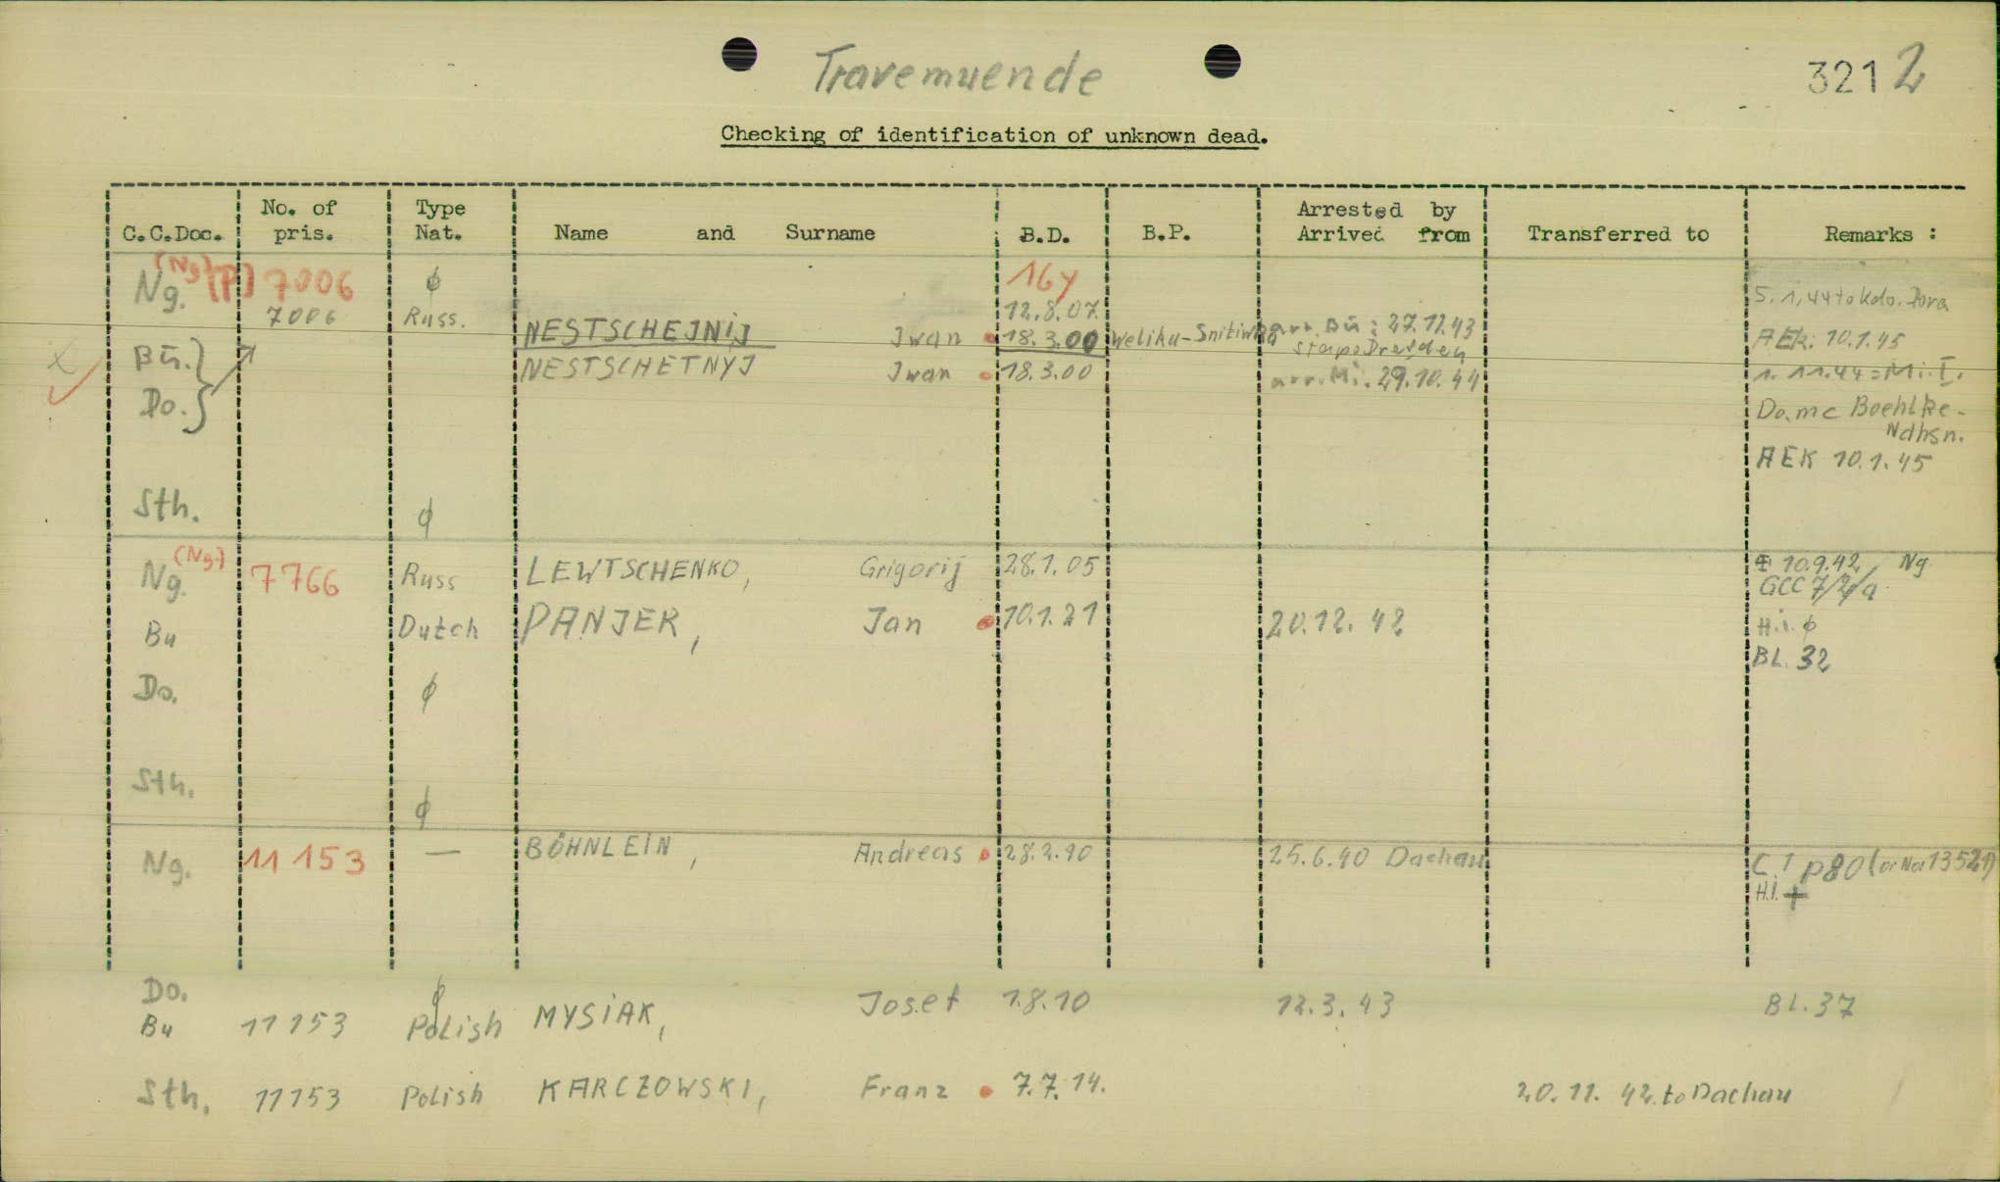 Travemuende
3212
Checking of identification of unknown dead.
C.C.Doc. No. of pris. Type Nat. Name and Surname B.D. B.P. Arrested by Arrived from Transferred to Remarks :
(Ng) (P) 7006 16y
Ng. ϕ 5.1.44 to Kdo. Dora
7006 Russ. 12.8.07
NESTSCHEJNIJ Jwan 18.3.00 Weliku-Snitiwka arr. Bu: 27.11.43 AEk: 10.1.45
Bu. Stapo Dresden
NESTSCHETNYJ Jwan 18.3.00 arr. Mi. 29.10.44 1.11.44 = Mi. I.
Do. Do. mc Boehlke-
Ndhsn.
AEK 10.1.45
Sth. ϕ
(Ng)
Ng. 7766 Russ LEWTSCHENKO, Grigorij 28.1.05 10.9.42 Ng
GCC 7/
Bu Dutch PANJER, Jan 10.1.21 20.12.42 H.i. ϕ
BL. 32
Do. ϕ
Sth. ϕ
Ng. 11153 — BÖHNLEIN, Andreas 28.2.90 25.6.40 Dachau C.1 p80 (or No: 13521)
H.I. +
Do. ϕ
Bu 11153 Polish MYSIAK, Josef 1.8.10 12.3.43 BL. 37
Sth. 11153 Polish KARCZOWSKI, Franz 7.7.14. 20.11.42. to Dachau